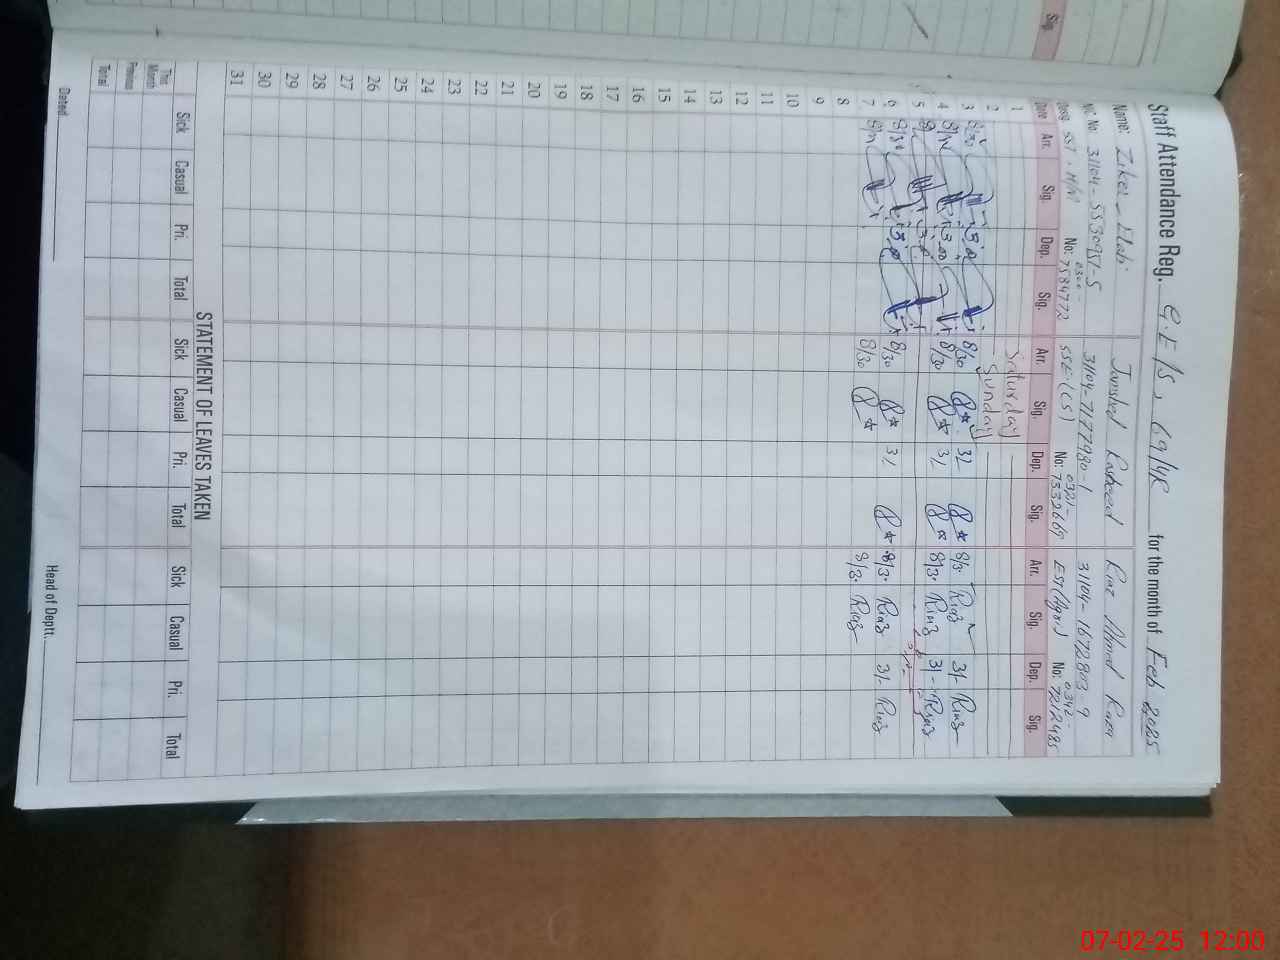 Sig.
Staff Attendance Reg. G.E/S, 69/4R for the month of Feb 2025
Name: Ziker Elahi Jamshed Rasheed Riaz Ahmad Raza
N/C No. 31104-5530951-5 31104-7177980-1 31104-1672803-9
Desg. SST. No: 0300-7584772 SSE.(CS) No: 0321-7332669 EST(Agri.) No: 0342-7212485
Date Arr. Sig. Dep. Sig. Arr. Sig. Dep. Sig. Arr. Sig. Dep. Sig.
1 Saturday
2 Sunday
3 8/30 3.0 8/30 3/ 8/3. Riaz 3/- Riaz
4 3.00 8/30 3/ 8/3. Riaz 3/- Riaz
5
6 8/30 3.0 8/30 3/ 8/3. Riaz 3/- Riaz
7 8/30 8/3. Riaz
8
9
10
11
12
13
14
15
16
17
18
19
20
21
22
23
24
25
26
27
28
29
30
31
STATEMENT OF LEAVES TAKEN
Sick Casual Pri. Total Sick Casual Pri. Total Sick Casual Pri. Total
This Month
Previous
Total
Dated Head of Deptt.
07-02-25 12:00